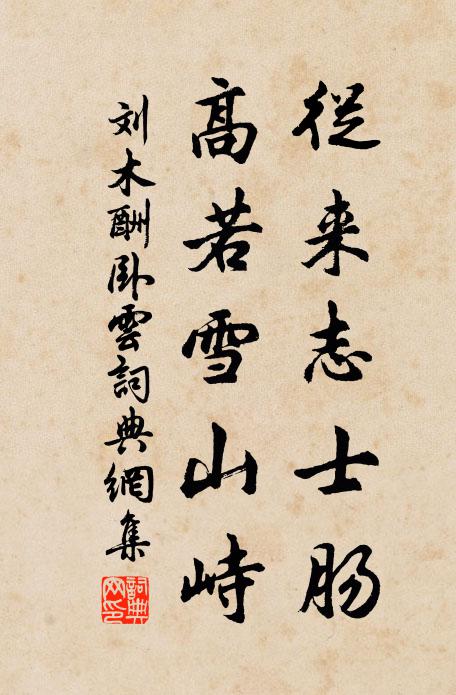 從来志士肠
高若雪山峙
刘木酬卧雲詞典網集
詞典
网印